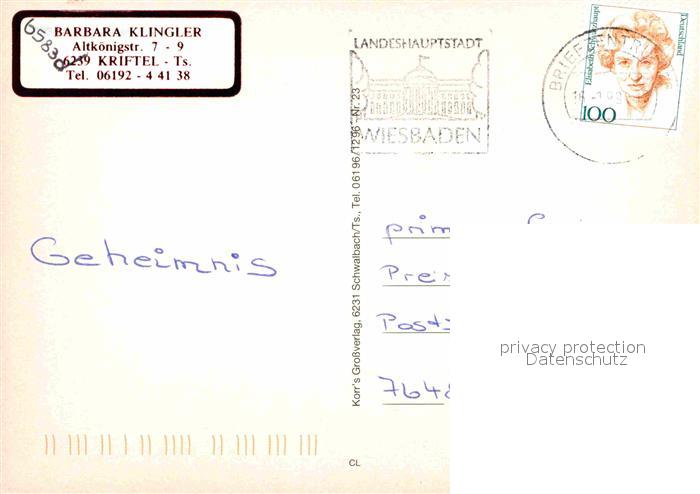 65830
BARBARA KLINGLER
Altkönigstr. 7 - 9
6239 KRIFTEL - Ts.
Tel. 06192 - 4 41 38
LANDESHAUPTSTADT
WIESBADEN
BRIEFZENTRU
Elisabeth Schwarzhaupt
Deutschland
100
Geheimnis
Korr's Großverlag, 6231 Schwalbach/Ts., Tel. 06196/1296 - Nr. 23
prim
Prei
Post
7648
privacy protection
Datenschutz
CL